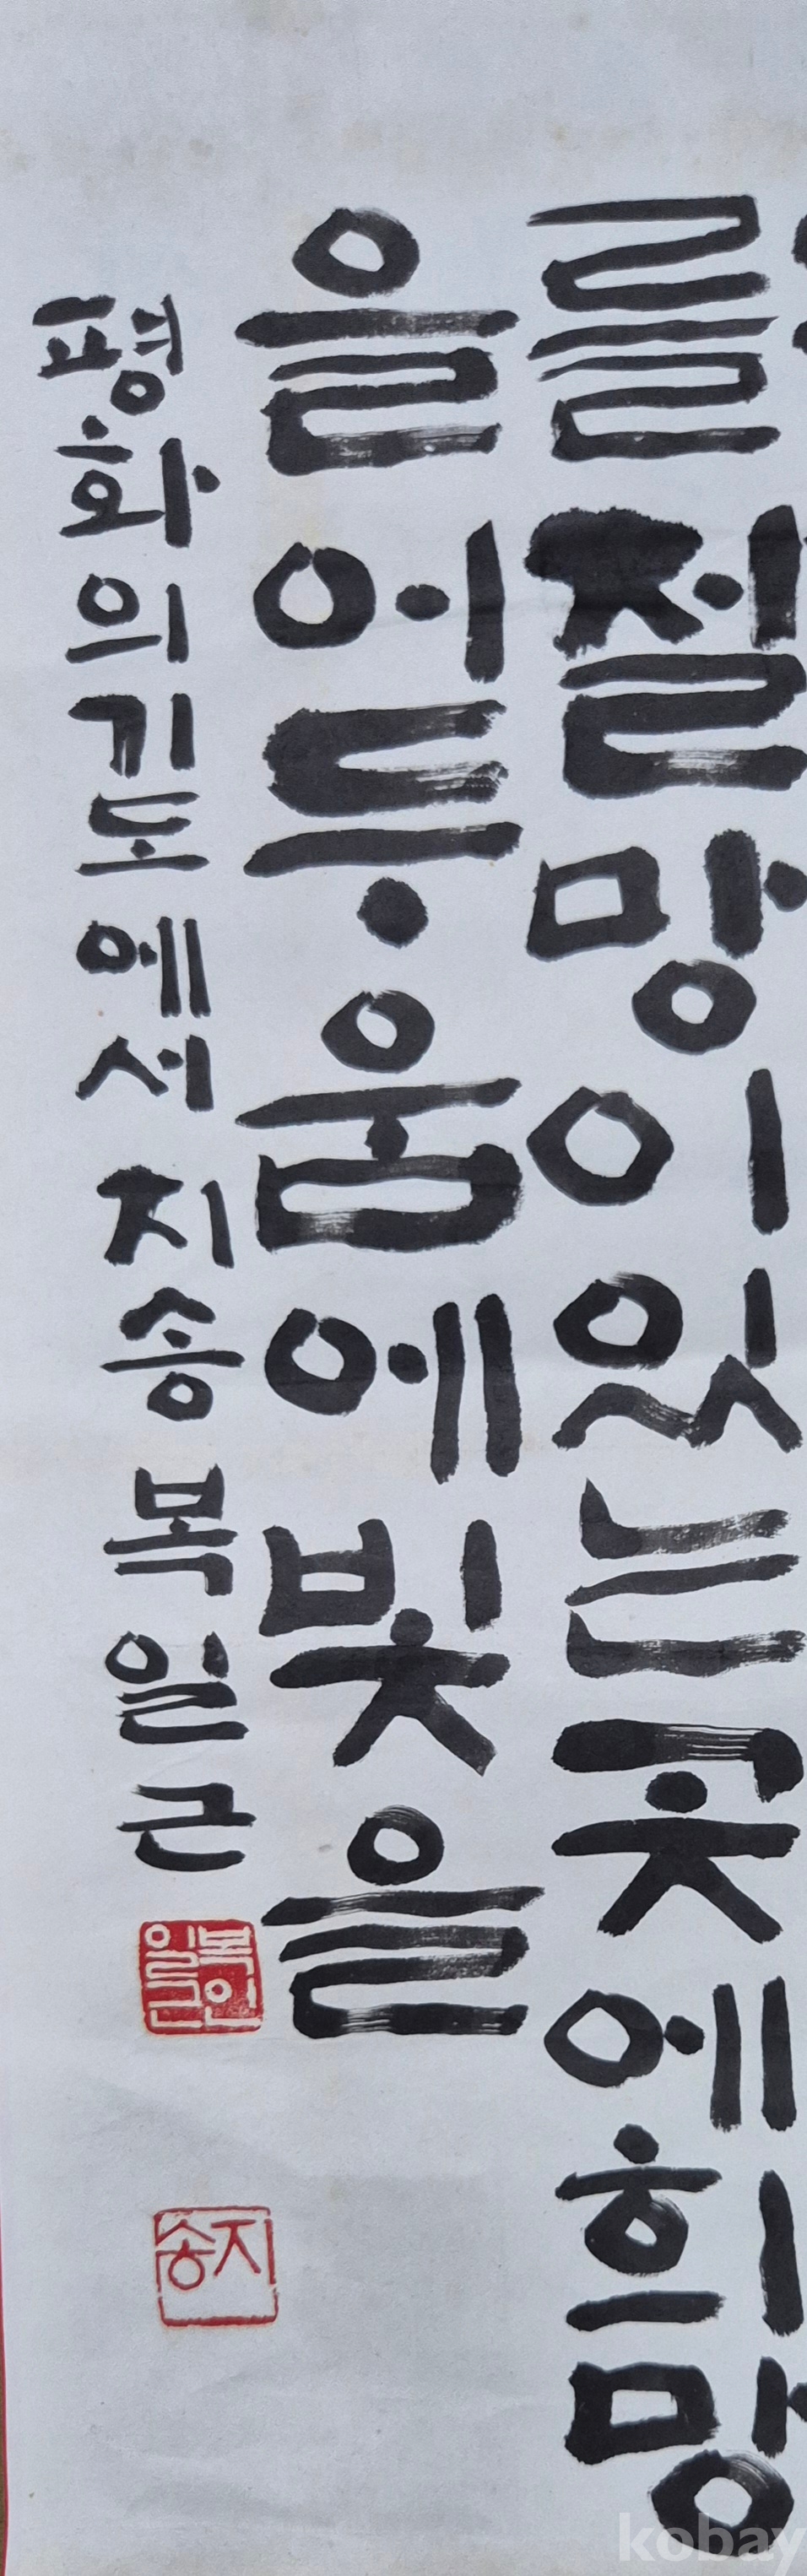 를 절망이 있는 곳에 희망
을 어두움에 빛을
평화의 기도에서 지송 복일근
복인
일근
지송
kobay